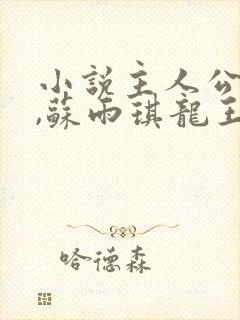 小說主人公
,蘇雨琪龍王
哈德森